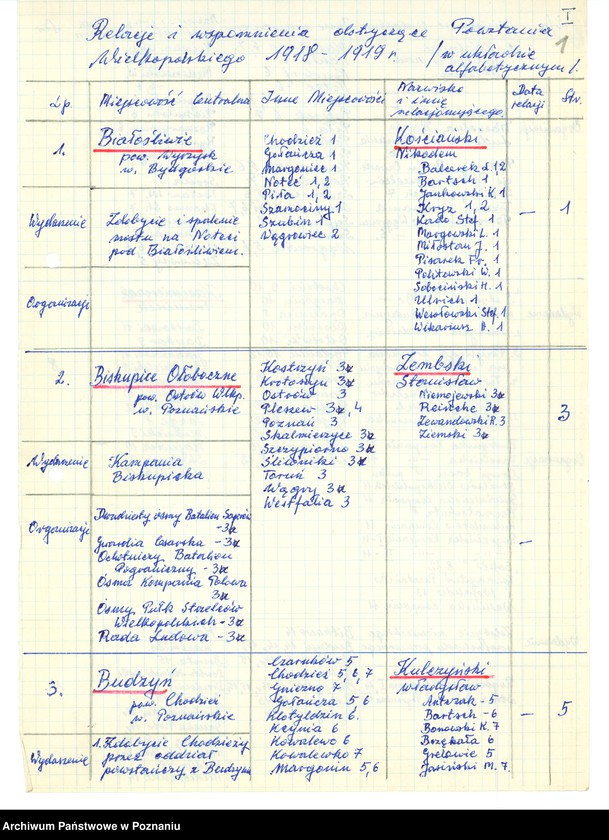 Relacje i wspomnienia dotyczące Powstania
Wielkopolskiego 1918 - 1919 r. /w układzie
alfabetycznym/.
I
1
Lp.
Miejscowość Centralna
Inne Miejscowości
Nazwisko
i imię
relacjonującego
Data
relacji
Str.
1.
Białośliwie
pow. Wyrzysk
w. Bydgoskie
Chodzież 1
Gołańcza 1
Margoniec 1
Noteć 1, 2
Piła 1, 2
Szamociny 1
Szubin 1
Wągrowiec 2
Kościański
Nikodem
Balcerek J. 1,2
Bartsch 1
Jankowski K. 1
Kryz 1, 2
Kado Stef. 1
Margowski L. 1
Miłostan J. 1
Pisarek Fr. 1
Politowski W. 1
Sobociński H. 1
Ulrich 1
Wesłowski Stef. 1
Wikariusz B. 1
-
1
Wydarzenie
Zdobycie i spalenie
mostu na Noteci
pod Białośliwiem.
Organizacje
2.
Biskupice Ołoboczne
pow. Ostrów Wlkp.
w. Poznańskie
Kostrzyń 3
Krotoszyn 3
Ostrów 3
Pleszew 3, 4
Poznań 3
Skalmierzyce 3
Szczypiorno 3
Śliwniki 3
Toruń 3
Węgry 3
Westfalia 3
Zembski
Stanisław
Niemojewski 3
Reische 3
Lewandowski R. 3
Ziemski 3
-
3
Wydarzenie
Kampania
Biskupicka
Organizacje
Dwudziesty ósmy Batalion Saperów
- 3
Gwardia Cesarska - 3
Ochotniczy Batalion
Pograniczny - 3
Ósma Kompania Polowa
3
Ósmy Pułk Strzelców
Wielkopolskich - 3
Rada Ludowa - 3
3.
Budzyń
pow. Chodzież
w. Poznańskie
Czarnków 5
Chodzież 5, 6, 7
Gniezno 7
Gołańcza 5, 6
Klotyldzin 6.
Kcynia 6
Kowalewo 6
Kowalewko 7
Margonin 5, 6
Kulczyński
Władysław
Antczak - 5
Bartsch - 6
Bonowski K. 7
Brzękała 6
Grelowic 5
Jasiński M. 7.
-
5
Wydarzenie
1. Zdobycie Chodzieży
przez oddział
powstańczy z Budzynia
Archiwum Państwowe w Poznaniu